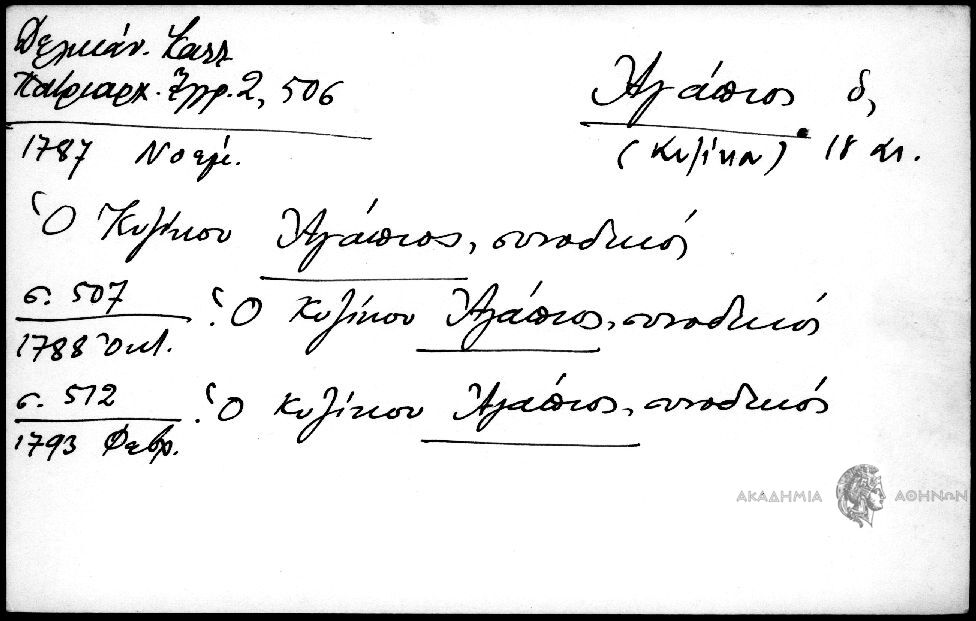 Δελικάν. Καλλ
Πατριαρχ. Ἔγγρ. 2, 506
1787 Νοεμ.
Ἀγάπιος δ,
(Κυζίκου) 18 αι.
Ὁ Κυζίκου Ἀγάπιος, συνοδικός
σ. 507
1788 Ὀκτ. : Ὁ Κυζίκου Ἀγάπιος, συνοδικός
σ. 512
1793 Φεβρ. : Ὁ Κυζίκου Ἀγάπιος, συνοδικός
ΑΚΑΔΗΜΙΑ ΑΘΗΝΩΝ